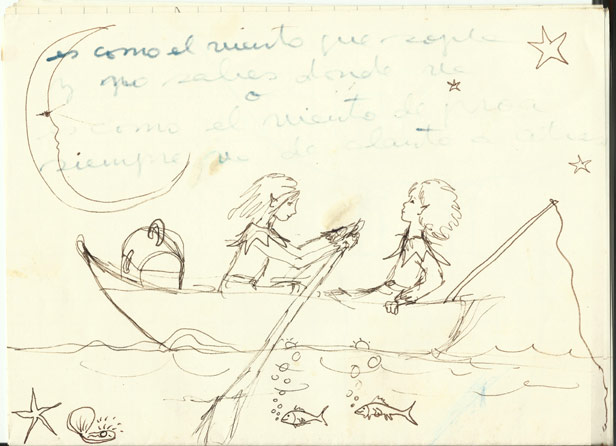 es como el viento que sopla
y no sabes donde va
o
es como el viento de proa
siempre va de delante a atras